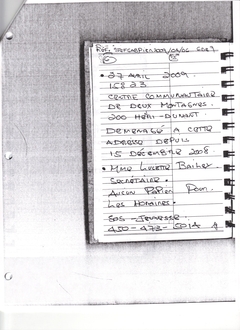 27 AVRIL 2009.
15H23
CENTRE COMMUNAUTAIRE
DE DEUX-MONTAGNES.
200 HENRI-DUNANT
DEMENAGÉ A CETTE
ADRESSE DEPUIS
15 DÉCEMBRE 2008.
• MME LUCETTE
SECRÉTAIRE.
AUCUN POUR
LES HORAIRES.
SOS-JEUNESSE.
450-473-5014